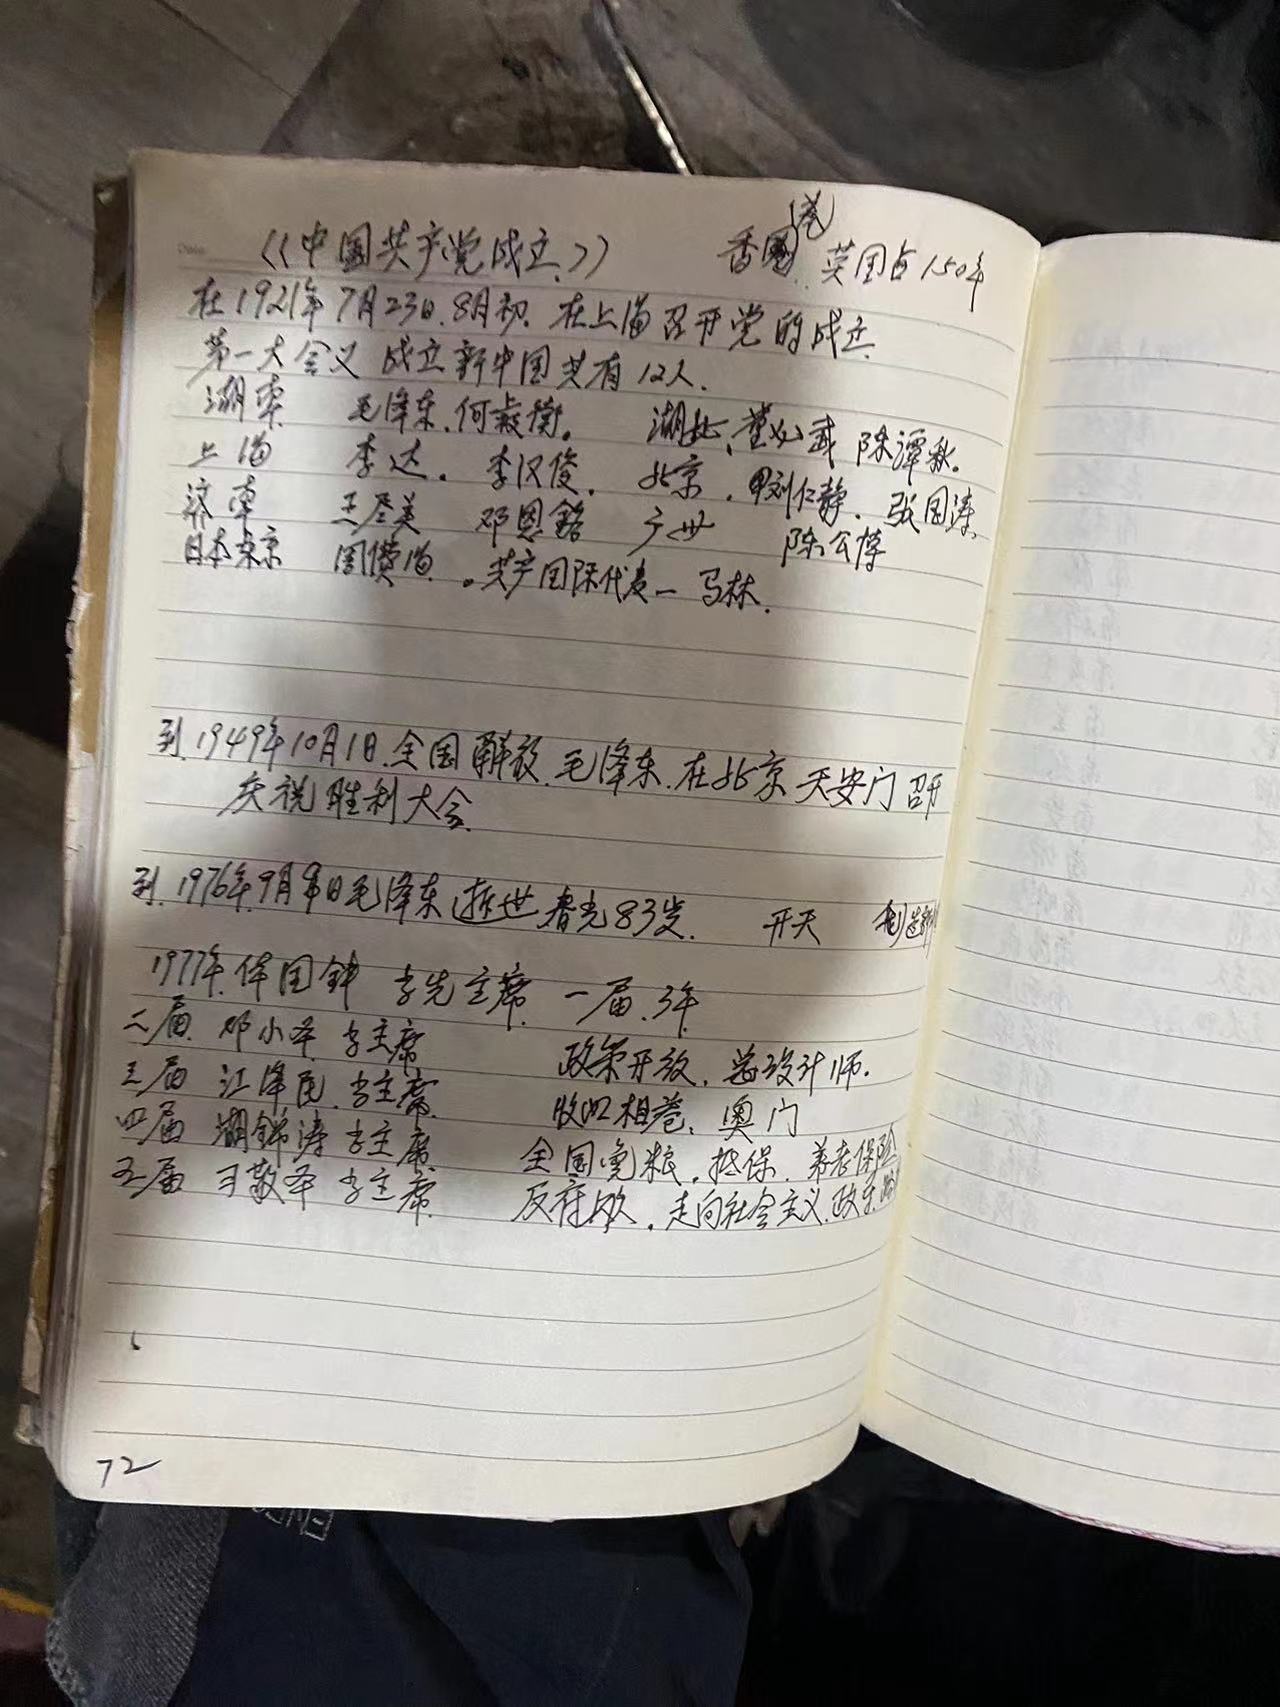 《中国共产党成立》 香港 英国占150年
在1921年7月23日.8月初.在上海召开党的成立
第一大会义 成立新中国共有12人.
湖南 毛泽东.何叔衡. 湖北、董必武 陈潭秋.
上海 李达. 李汉俊. 北京. 刘仁静. 张国涛
济南 王尽美 邓恩铭 广世 陈公博
日本东京 周佛海. 共产国际代表一 马林.
到.1949年10月1日.全国解放.毛泽东.在北京天安门召开
庆祝胜利大会
到.1976年.9月9日毛泽东逝世 春光83岁. 开天
1977年. 国 主席 一届.3年
二届. 邓小平. 主席 政策开放. 总设计师.
三届 江泽民. 主席. 收回相巷. 奥门
四届 湖锦涛 主席 全国免粮. 抵保. 养老保险
五届 习敬平 主席. 反府败. 走向社会主义.
72